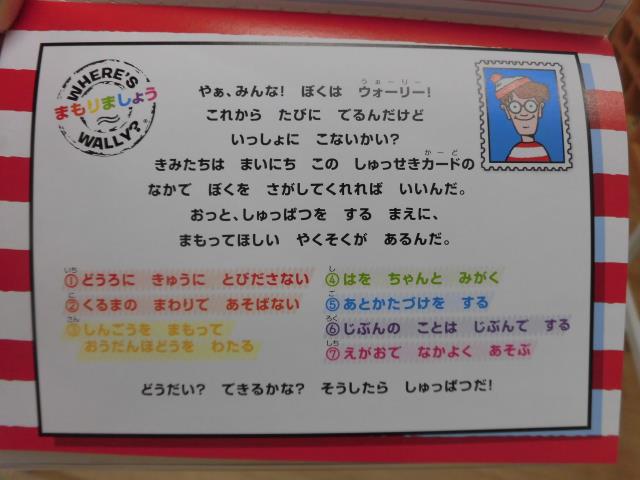 WHERE'S
まもりましょう
WALLY?
やぁ、みんな! ぼくは ウォーリー!
うぉーりー
これから たびに でるんだけど
いっしょに こないかい?
きみたちは まいにち この しゅっせきカードの
かーど
なかで ぼくを さがしてくれれば いいんだ。
おっと、しゅっぱつを する まえに、
まもってほしい やくそくが あるんだ。
いち
①どうろに きゅうに とびださない
に
②くるまの まわりで あそばない
さん
③しんごうを まもって
おうだんほどうを わたる
し
④はを ちゃんと みがく
ご
⑤あとかたづけを する
ろく
⑥じぶんの ことは じぶんで する
しち
⑦えがおで なかよく あそぶ
どうだい? できるかな? そうしたら しゅっぱつだ!